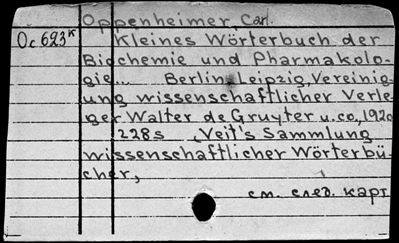 Oppenheimer, Carl.
Oc 623ᴷ Kleines Wörterbuch der
Biochemie und Pharmakolo-
gie... Berlin, Leipzig, Vereinig-
ung wissenschaftlicher Verle-
ger Walter de Gruyter u. co., 1920
228s (Veit's Sammlung
wissenschaftlicher Wörterbü-
cher,
см. след. карт